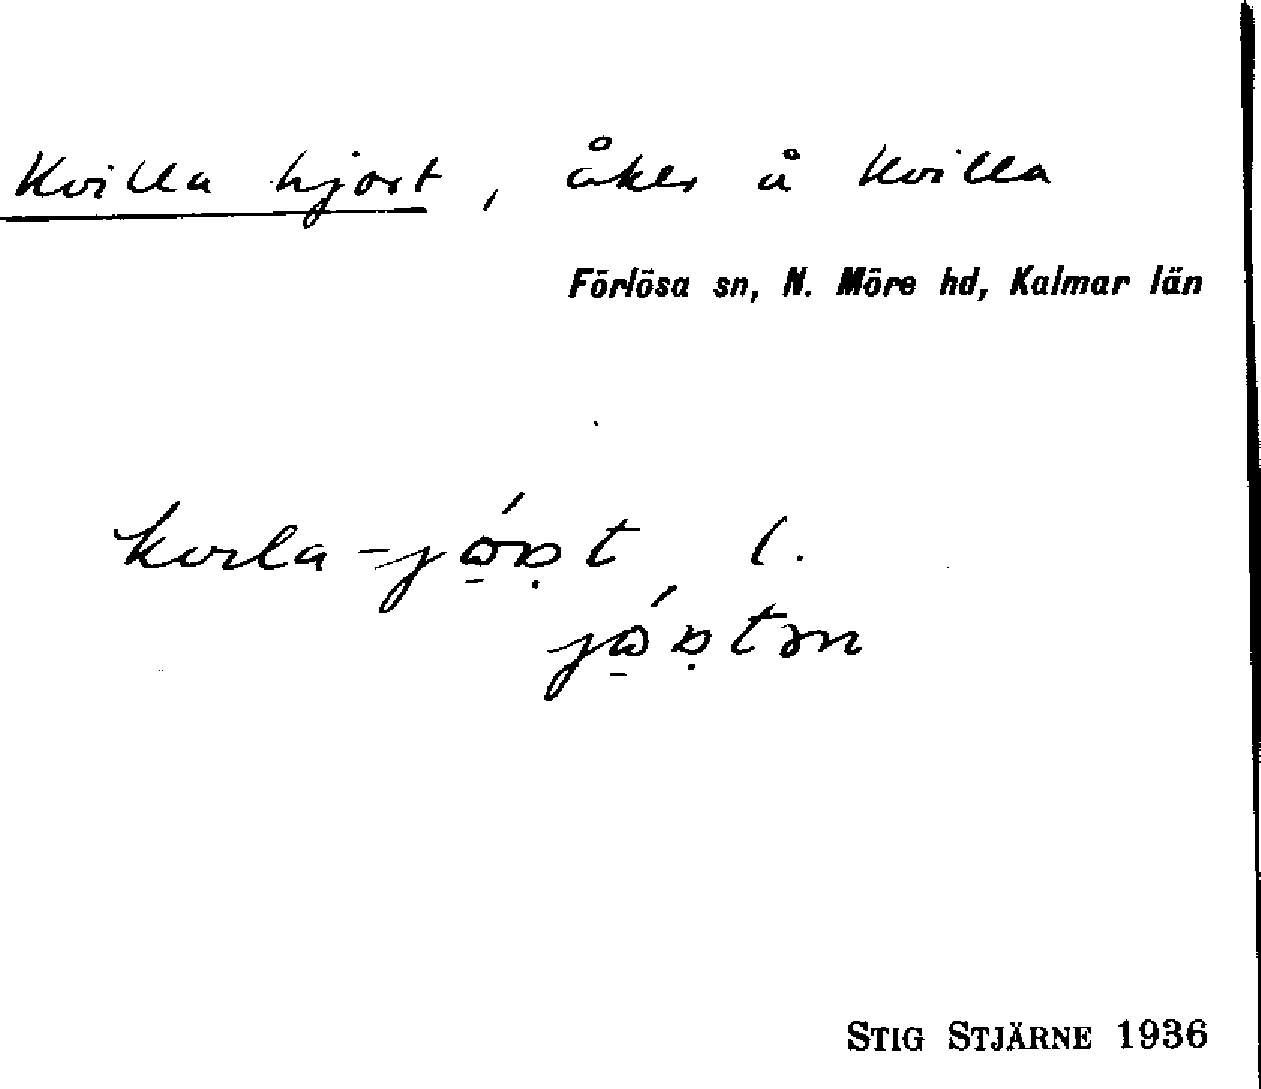 Kvilla hjort, åker å Kvilla
Förlösa sn, N. Möre hd, Kalmar län
l.
STIG STJÄRNE 1936